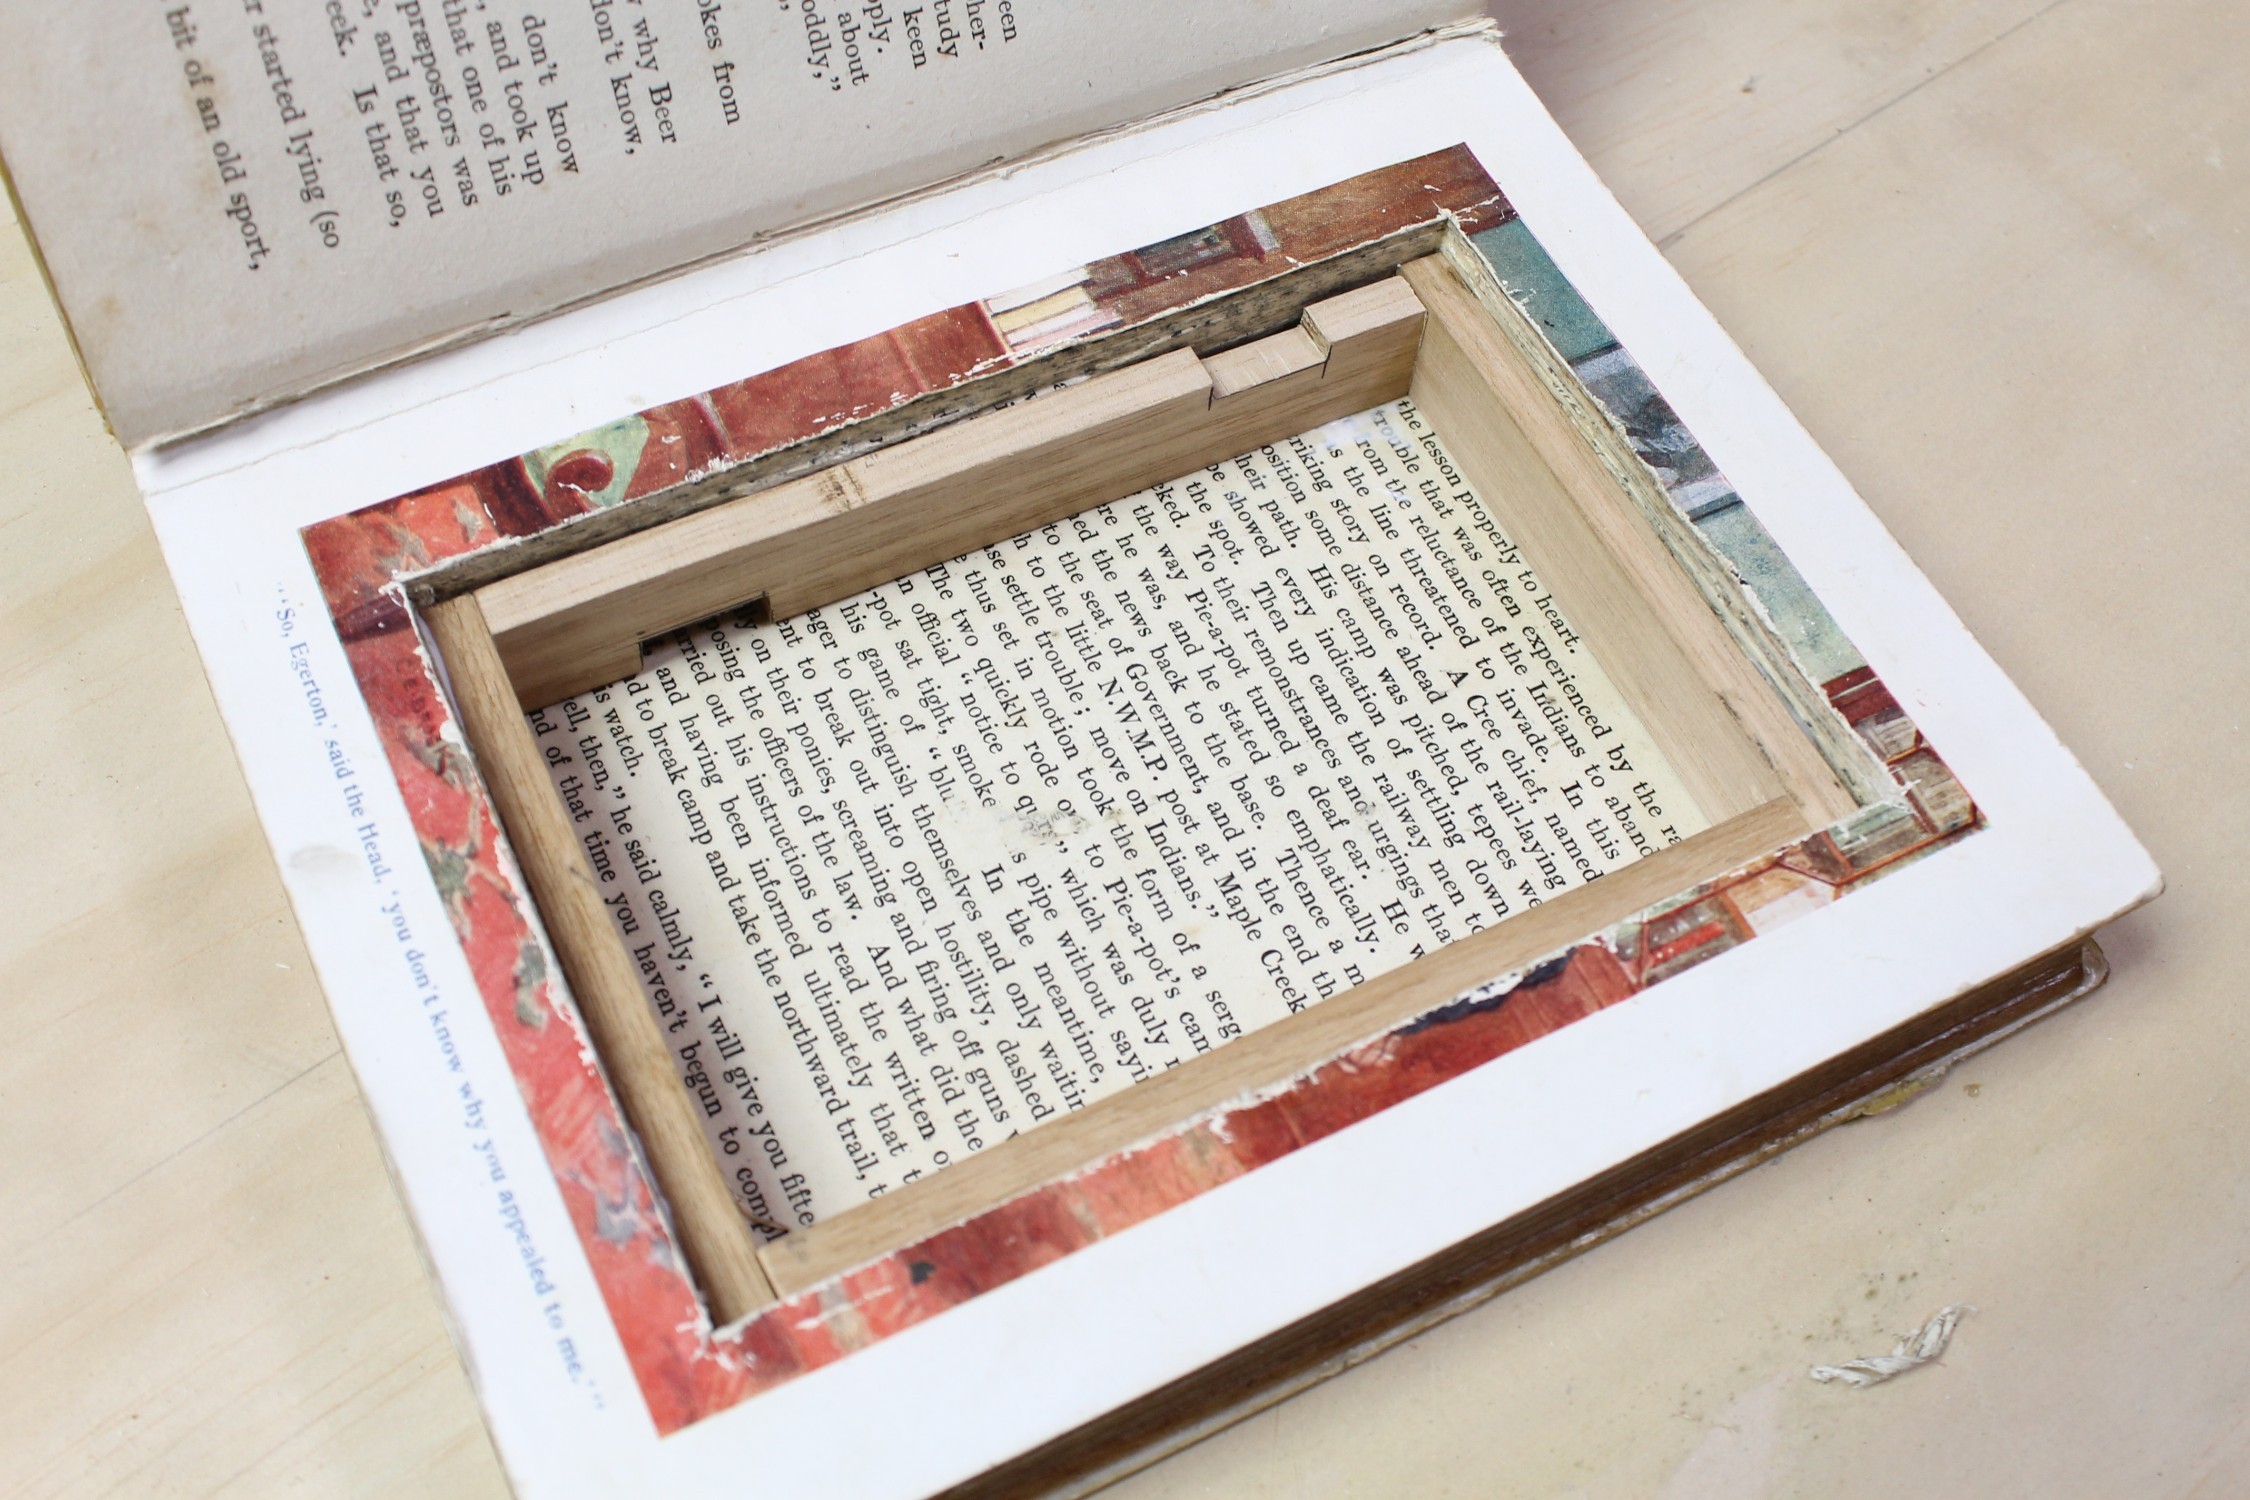 een
her-
tudy
keen
pply.
about
oddly,”
okes from
y why Beer
don't know,
don't know
, and took up
that one of his
præpostors was
e, and that you
eek. Is that so,
r started lying (so
bit of an old sport,
the lesson properly to heart.
trouble that was often experienced by the ra
rom the reluctance of the Indians to aband
is the line threatened to invade. In this
riking story on record. A Cree chief, named
osition some distance ahead of the rail-laying
heir path. His camp was pitched, tepees we
be showed every indication of settling down
the spot. Then up came the railway men to
cked. To their remonstrances and urgings tha
the way Pie-a-pot turned a deaf ear. He w
re he was, and he stated so emphatically.
ned the news back to the base. Thence a m
to the seat of Government, and in the end th
h to the little N.W.M.P. post at Maple Creek
ase settle trouble ; move on Indians.”
e thus set in motion took the form of a serg
The two quickly rode ov to Pie-a-pot's cam
n official “notice to which was duly r
-pot sat tight, smoke s pipe without sayi
his game of “blu In the meantime,
ager to distinguish themselves and only waitin
ent to break out into open hostility, dashed
y on their ponies, screaming and firing off guns
posing the officers of the law. And what did the
rried out his instructions to read the written o
and having been informed ultimately that t
d to break camp and take the northward trail, t
is watch.
ell, then,” he said calmly, “I will give you fifte
nd of that time you haven't begun to compl
“‘So, Egerton,’ said the Head, ‘you don't know why you appealed to me.’”